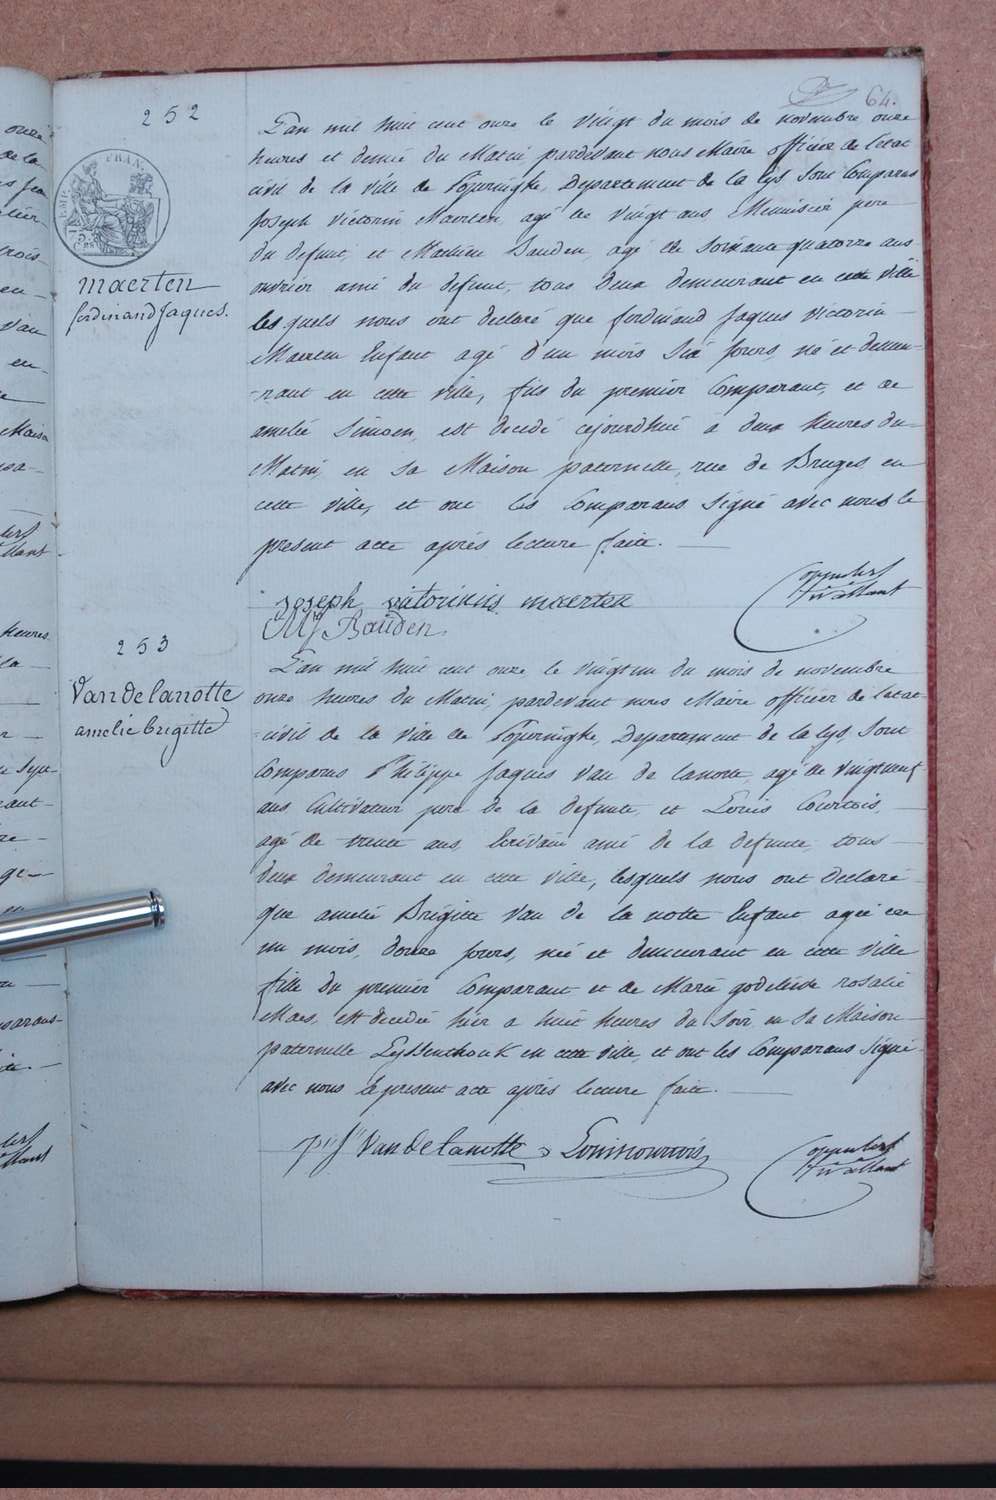 64.
252
L'an mil huit cent onze le vingt du mois de novembre onze
heures et demie du Matin pardevant nous Maire officier de l'etat
civil de la ville de Poperinghe, Departement de la lys sont Comparus
Joseph Victorin Maerten agé de vingt ans Menuisier pere
du defunt, et Martin Bauden, agé de soixante quatorze ans
ouvrier ami du defunt, tous deux demeurant en cette ville
lesquels nous ont declaré que ferdinand Jaques victorin
Maerten Enfant agé d'un mois six jours, né et demeu-
-rant en cette ville, fils du premier Comparant, et de
amelie Simoen, est decedé cejourdhui a deux heures du
Matin, en sa Maison paternelle, rue de Bruges, en
cette ville, et ont les Comparans signé avec nous le
present acte après lecture faite.
EMP. FRAN.
maerten
ferdinand Jaques.
joseph victorinis maerten
Mj Bauden.
253
Vandelanotte
amelie brigitte
L'an mil huit cent onze le vingt un du mois de novembre
onze heures du Matin, pardevant nous Maire officier de l'etat
civil de la ville de Poperinghe, Departement de la lys, sont
Comparus Philippe Jaques Van de lanotte, agé de vingt neuf
ans Cultivateur pere de la defunte, et Louis Courtois,
agé de trente ans, Ecrivain ami de la defunte, tous
deux demeurant en cette ville, lesquels nous ont declaré
que amelie Brigitte Van de la notte Enfant agée de
un mois, douze jours, née et demeurant en cette ville
fille du premier Comparant et de Marie godelieve rosalie
Maes, est decedée hier a huit heures du soir, en sa Maison
paternelle Eyssenhouk en cette ville, et ont les Comparans signé
avec nous le present acte après lecture faite.
Van de lanotte Louis courtois